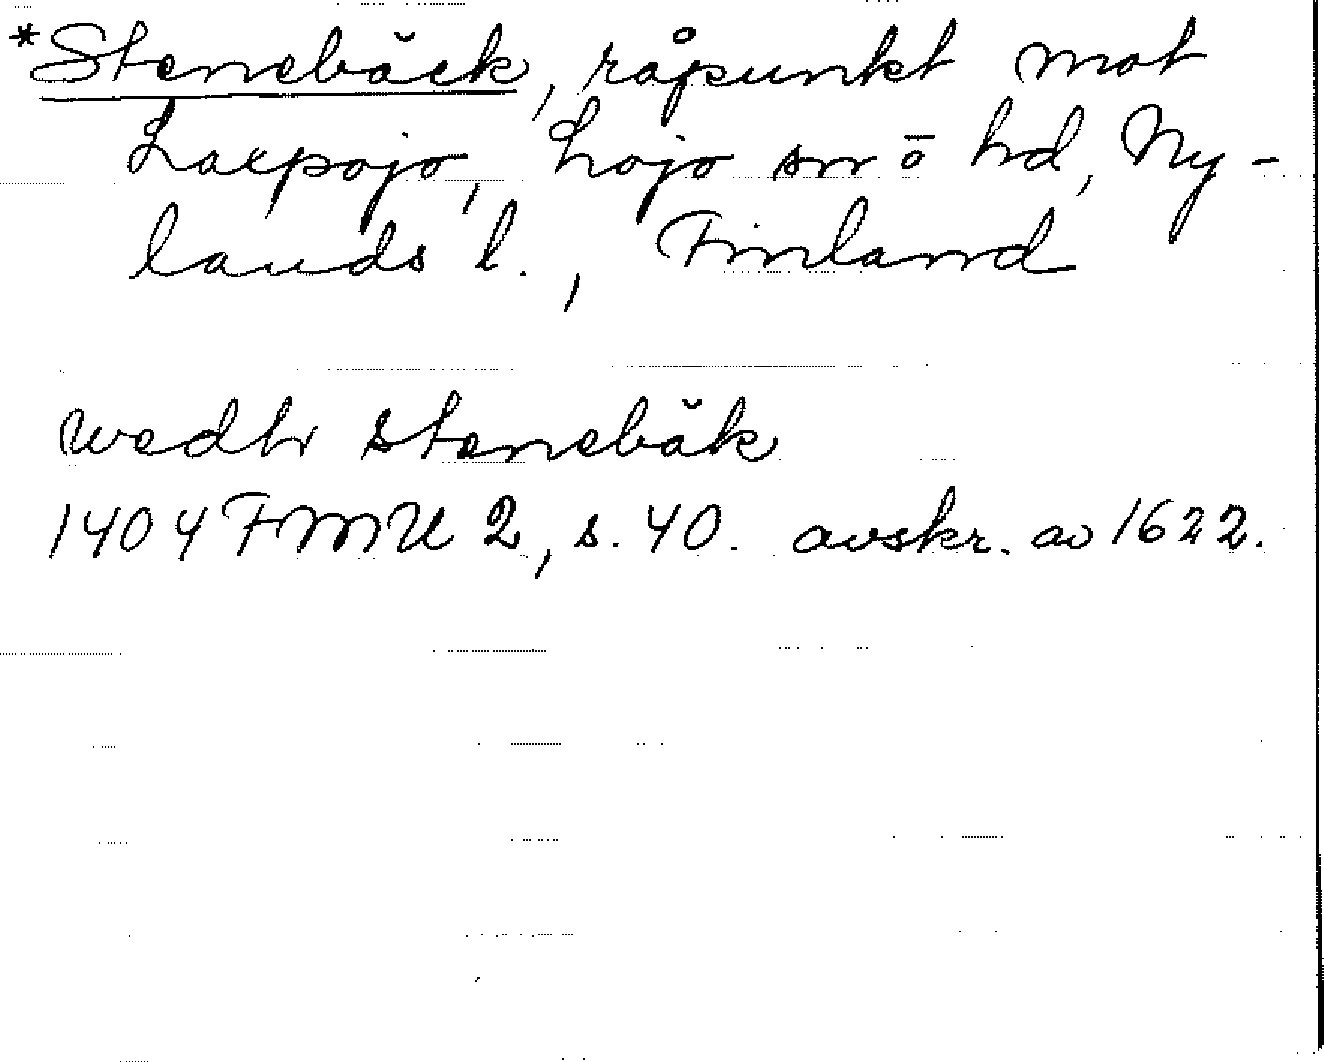 *Stenebäck, råpunkt mot
Laxpojo, Lojo sn ö hd, Ny-
lands l., Finland
wedhr stenebäk
1404 FMU 2, s. 40. avskr. av 1622.